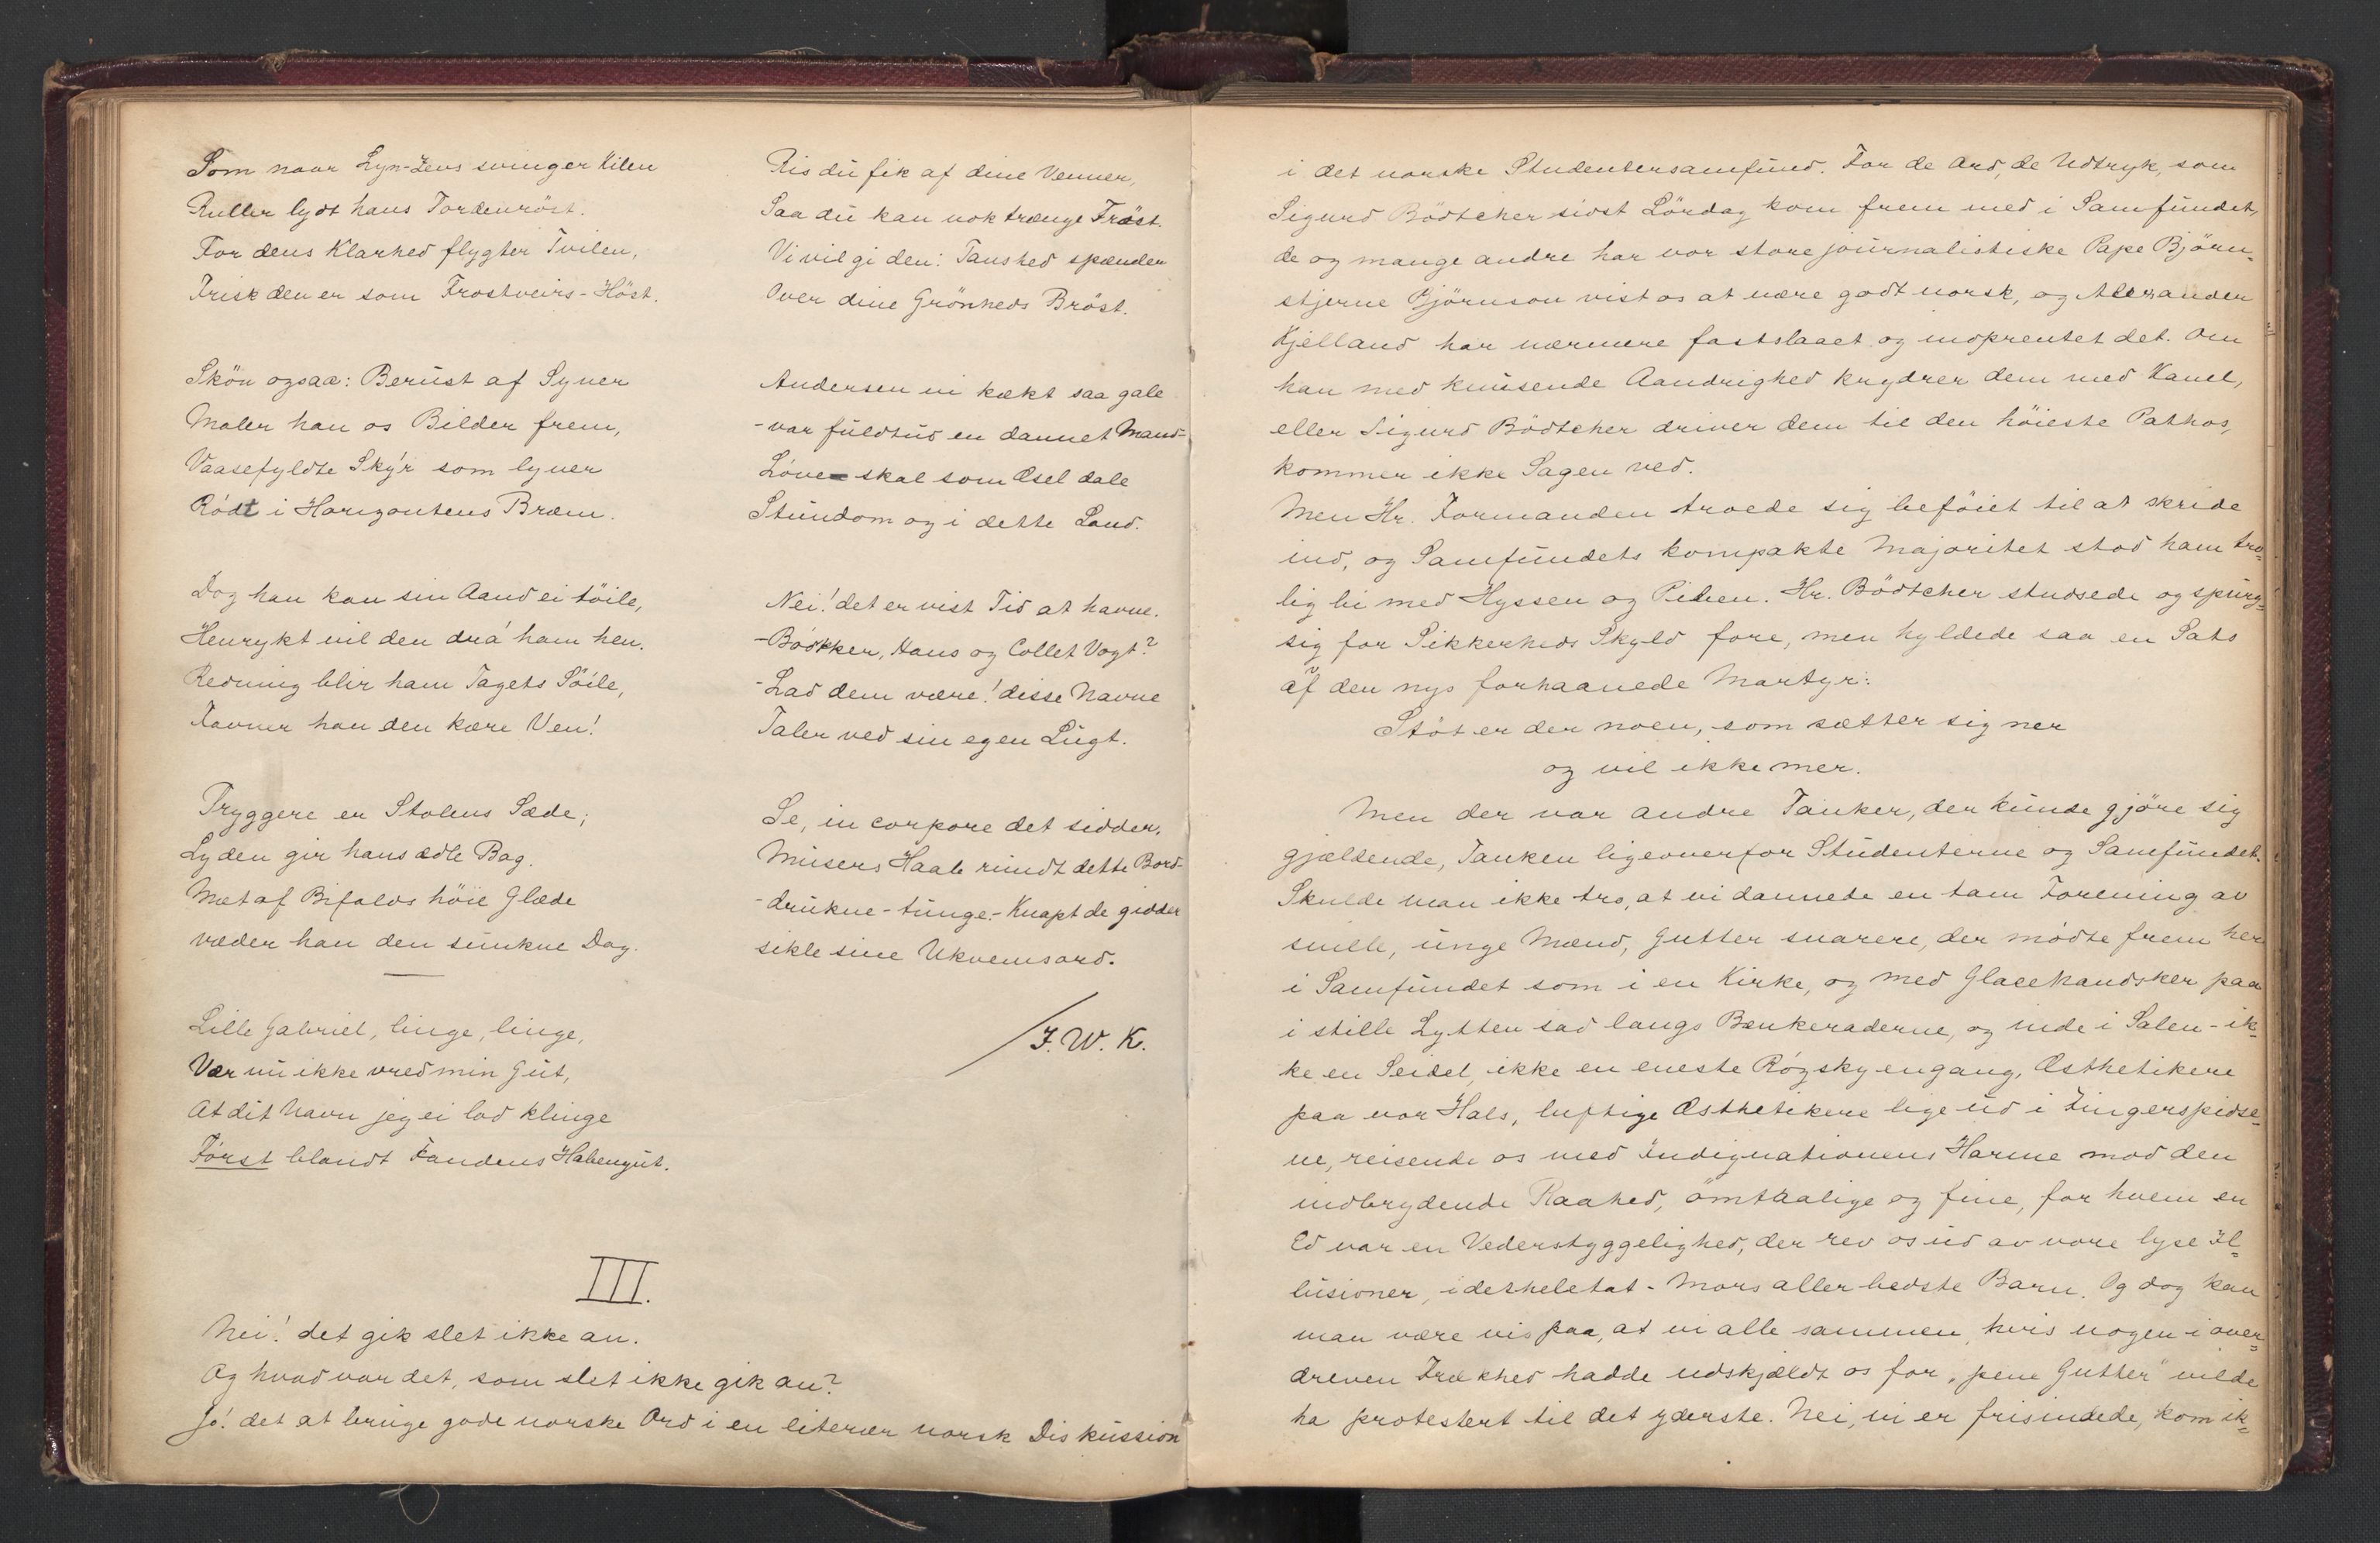 Som naar Lyn-Zevs svinger Kilen
Ruller lydt hans Tordenröst.
For dens Klarhed flygter Tvilen,
Frisk den er som Frostveirs-Höst.
Skön ogsaa: Berust af Syner
Maler han os Bilder frem,
Vaasefyldte Skýr som lyner
Rödt i Horizontens Bræm.
Dog han kan sin Aand ei töile,
Henrykt vil den dra ham hen.
Redning blir ham Tagets Söile,
Favner han den kære Ven!
Tryggere er Stolens Sæde;
Lyden gir hans ædle Bag.
Mæt af Bifalds höie Glæde
væder han den sunkne Dag.
Lille Gabriel, linge, linge,
Vær nu ikke vred min Gut,
At dit Navn jeg ei lod klinge
Först blandt Fandens Habengut.
Ris du fik af dine Venner,
Saa du kan nok trænge Fröst.
Vi vil gi den: Taushed spænder
Over dine Grönheds Bröst.
Andersen vi kækt saa gale
- var fuldtud en dannet Mand-
Löve skal som Æsel dale
Stundom og i dette Land.
Nei! det er vist Tid at havne.
-Bödtker, Hans og Collet Vogt?
-Lad dem være! disse Navne
Taler ved sin egen Lugt.
Se, in corpore det sidder,
Musers Haab rundt dette Bord-
-drukne-tunge.- Knapt de gidder
sikle sine Ukvemsord.
/J. W. K.
III.
Nei! det gik slet ikke an.
Og hvad var det, som slet ikke gik an?
Jo! det at bruge gode norske Ord i en literær norsk Diskussion
i det norske Studentersamfund. For de Ord, de Udtryk, som
Sigurd Bödtcher sidst Lördag kom frem med i Samfundet,
de og mange andre har vor store journalistiske Pape Björn-
stjerne Björnson vist os at være godt norsk, og Alexander
Kjelland har nærmere fastslaaet og indprentet det. Om
han med knusende Aandrighed krydrer dem med Kanel,
eller Sigurd Bödtcher driver dem til den höieste Pathos,
kommer ikke Sagen ved.
Men Hr. Formanden troede sig beföiet til at skride
ind, og Samfundets kompakte Majoritet stod ham tro-
lig bi med Hyssen og Piben. Hr. Bödtcher studsede og spurg-
sig for Sikkerheds Skyld fore, men hyldede saa en Sats
af den nys forhaanede Martyr:
Stöt er der noen, som sætter sig ner
og vil ikke mer.
Men der var andre Tanker, der kunde gjöre sig
gjældende, Tanken ligeoverfor Studenterne og Samfundet.
Skulde man ikke tro, at vi dannede en tam Forening av
snille, unge Mænd, Gutter snarere, der mödte frem her
i Samfundet som i en Kirke, og med Glacehandsker paa
i stille Lytten sad langs Bænkeraderne, og inde i Salen - ik-
ke en Seidel, ikke en eneste Rögsky engang, Æsthetikere
paa vor Hals, luftige Æsthetikere lige ud i Fingerspidse-
ne, reisende os med Indignationens Harme mod den
indbrydende Raahed, ömtaalige og fine, for hvem en
Ed var en Vederstyggelighed, der rev os ud av vore lyse Il-
lusioner, idetheletat - Mors aller bedste Barn. Og dog kan
man være vis paa, at vi alle sammen, hvis nogen i over-
dreven Frækhed hadde udskjældt os for „pene Gutter" vilde
ha protestert til det yderste. Nei, vi er frisindede, kom ik-